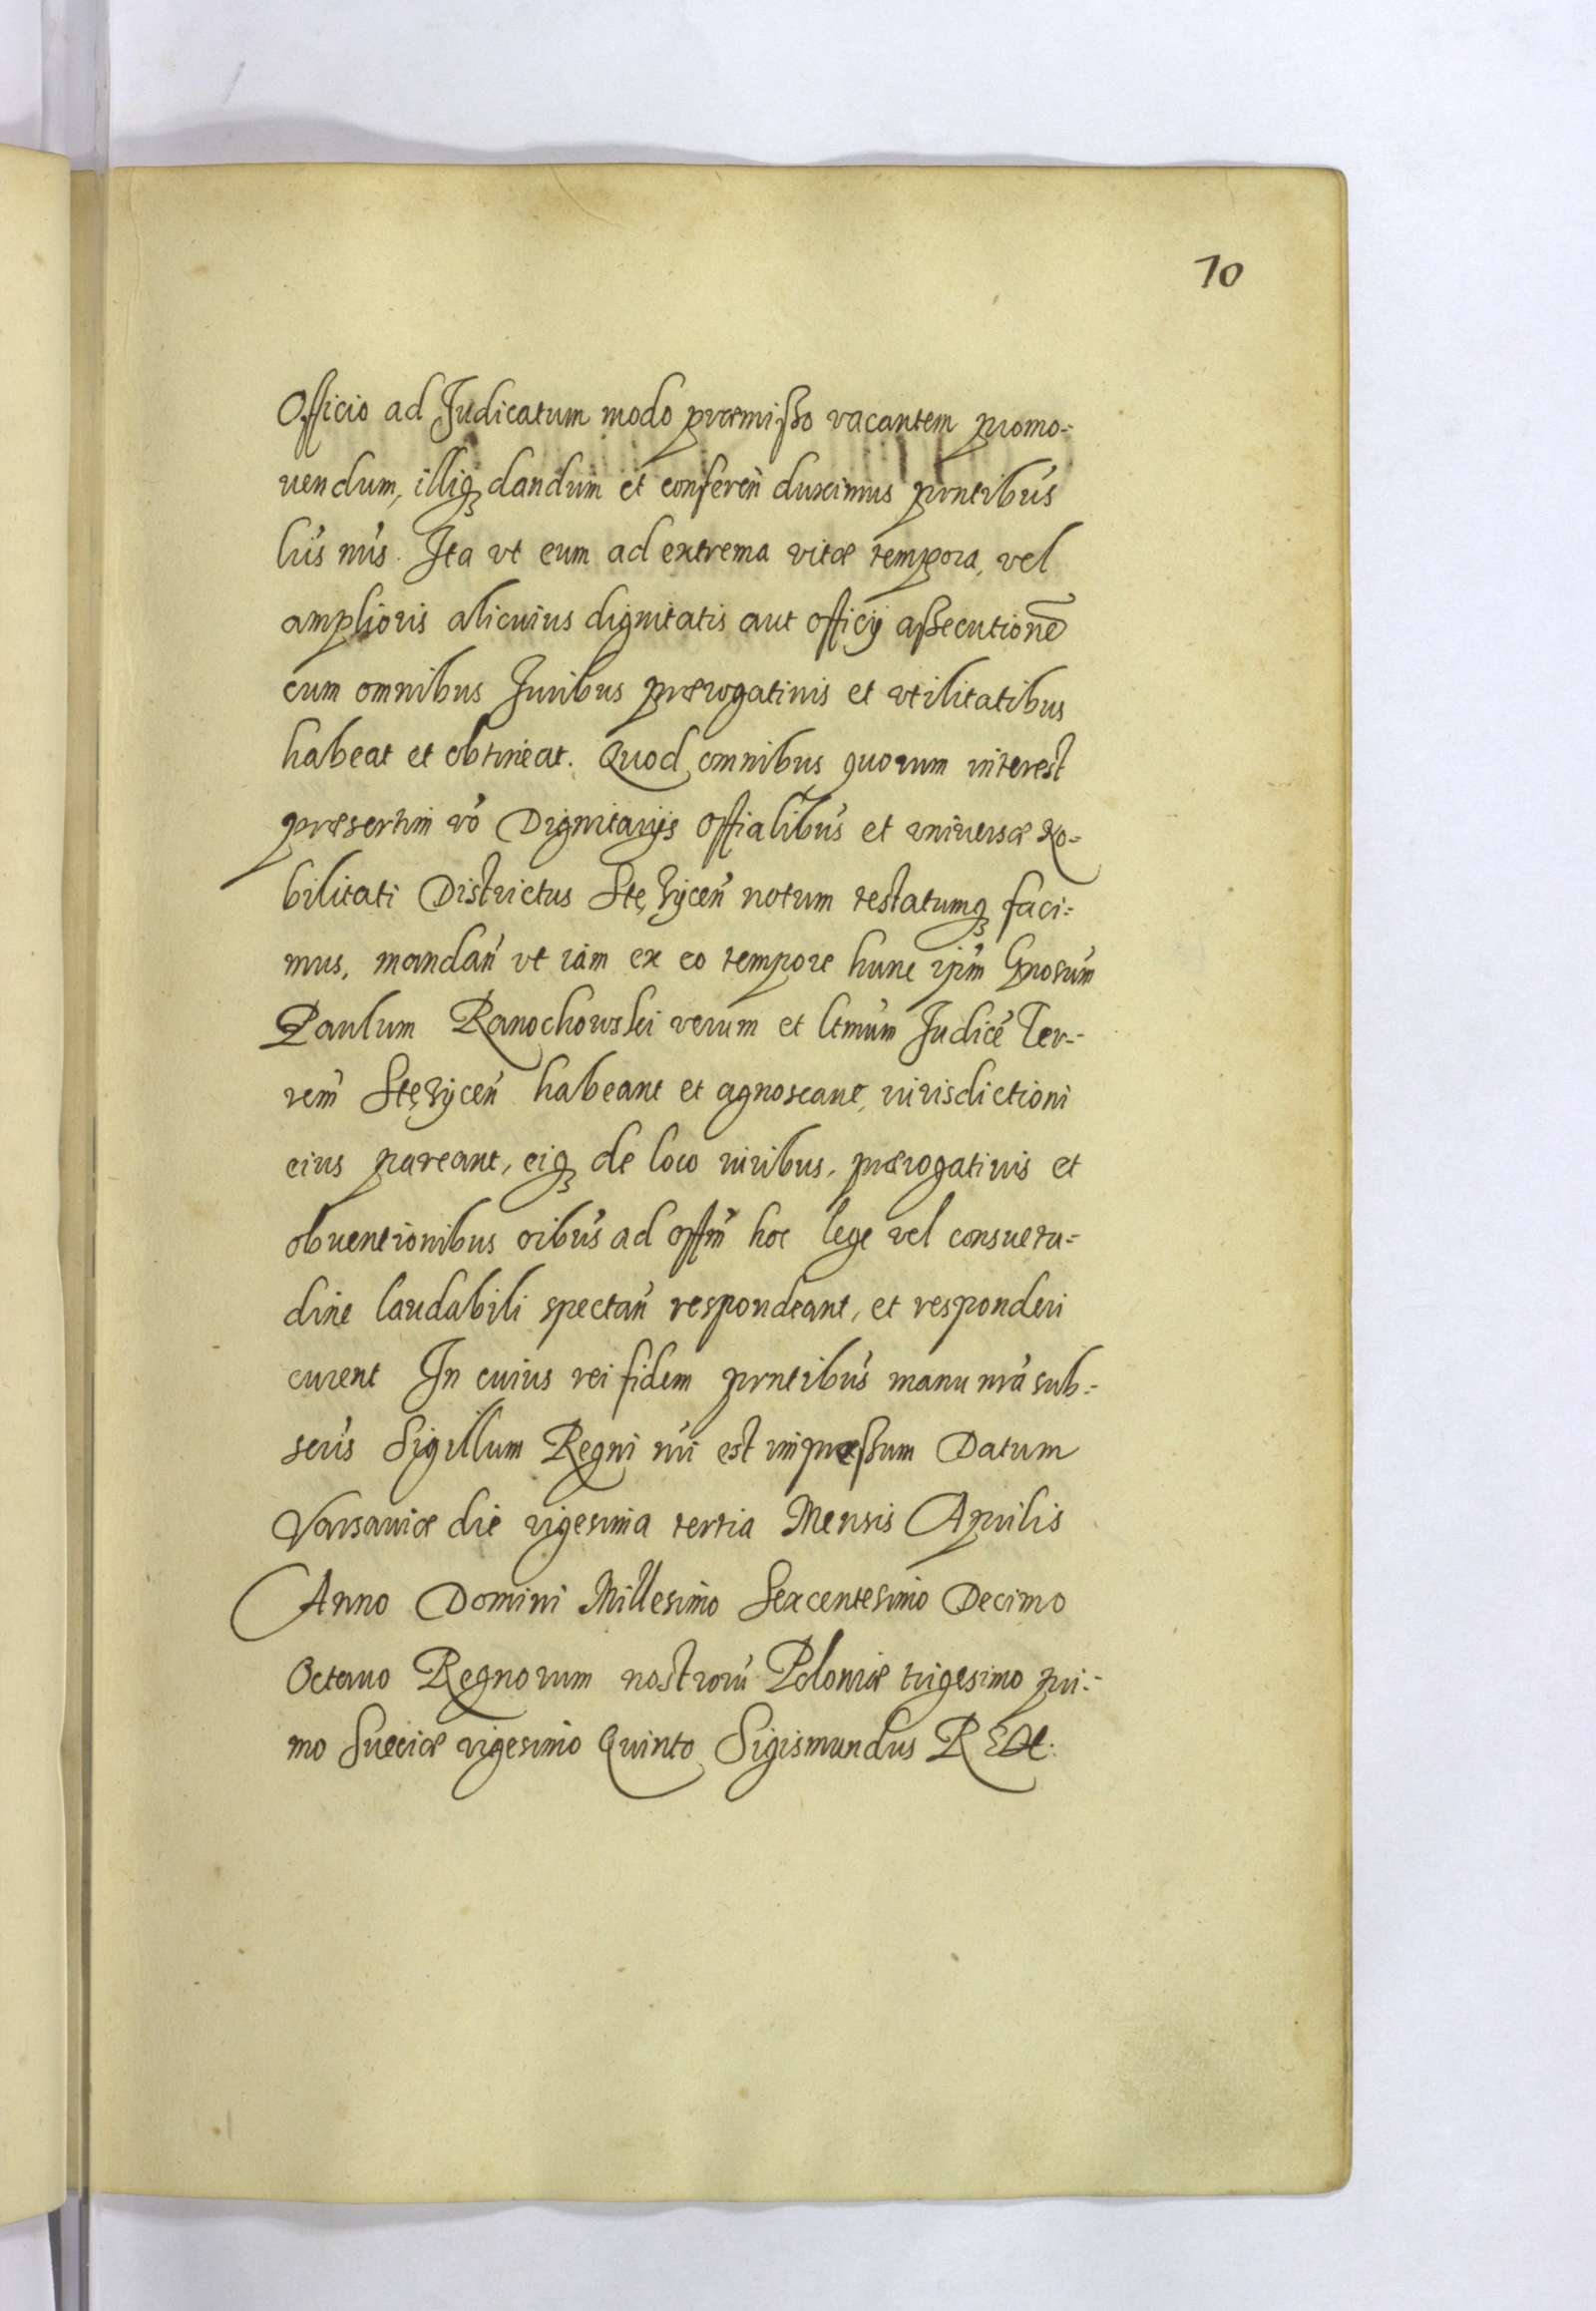 10
Officio ad Judicatum modo præmißo vacantem promo=
uendum, illiq₃ dandum et conferen̄ duximus prntibus
lris nris. Ita vt eum ad extrema vitæ tempora, vel
amplioris alicuius dignitatis aut officij aßecutionē
cum omnibus Juribus prærogatiuis et vtilitatibus
habeat et obtineat. Quod omnibus quorum interest
præsertim vo Dignitarijs Offialibus et vniuersæ No=
bilitati Districtus Stężycen̄ notum testatumq₃ faci=
mus, mandan̄ vt iam ex eo tempore hunc ipm̄ Gnosum
Paulum Ranochowski verum et ltmum Judicē Ter=
ren̄ Stężycen̄ habeant et agnoscant, iurisdictioni
eius pareant, eiq₃ de loco iuribus, prærogatiuis et
obuentionibus oibus ad offm̄ hoc lege vel consuetu=
dine laudabili spectan̄ respondeant, et responderi
curent In cuius rei fidem prntibus manu nra sub=
scris Sigillum Regni nri est impræßum Datum
Varsauiæ die vigesima tertia Mensis Aprilis
Anno Domini Millesimo Sexcentesimo Decimo
Octauo Regnorum nostrorū Poloniæ trigesimo pri=
mo Sueciæ vigesimo Quinto Sigismundus REX.